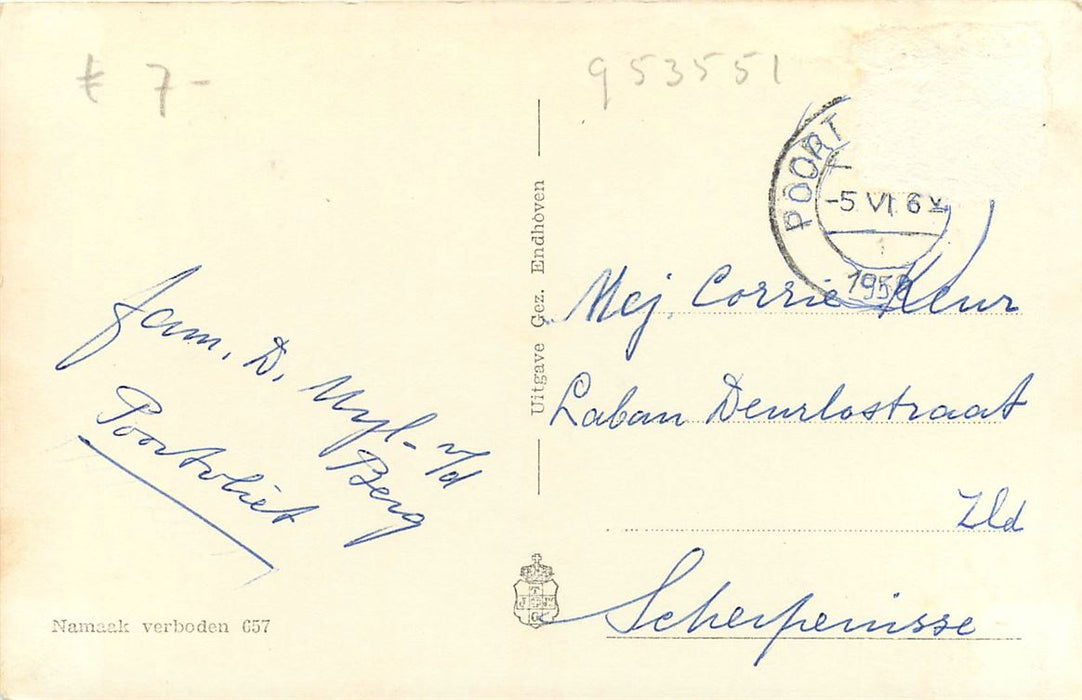 € 7-
953551
POORT
-5 VI 6
1
195
Uitgave Gez. Endhoven
Mej. Corrie Keur
Laban Deurlostraat
Zld
Scherpenisse
fam. D. Uyl- v/d
Berg
Poortvliet
Namaak verboden 657